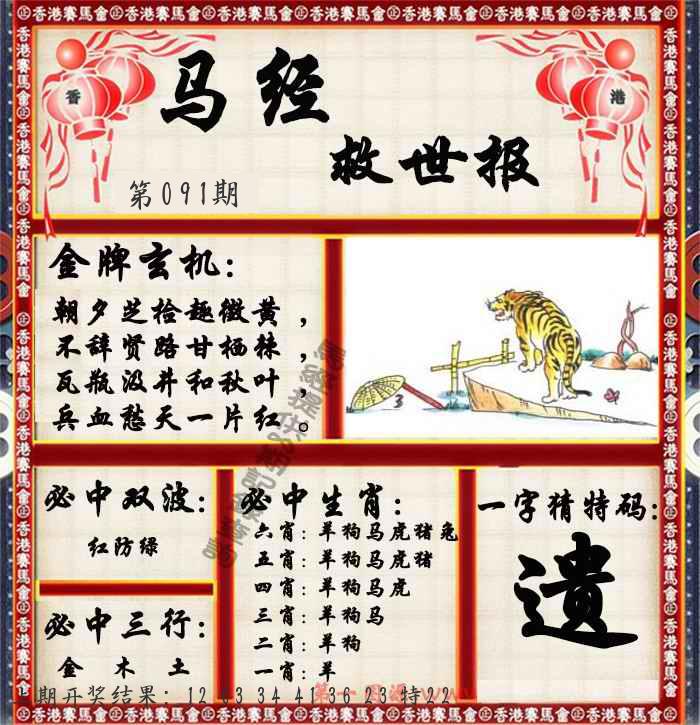 香港賽馬會
香 港
马经
救世报
第091期
金牌玄机：
朝夕芝拾趣微黄，
不辞贤路甘栖棘，
瓦瓶汲井和秋叶，
兵血愁天一片红。
3
必中双波：
红防绿
必中三行：
金 木 土
必中生肖：
六肖：羊狗马虎猪兔
五肖：羊狗马虎猪
四肖：羊狗马虎
三肖：羊狗马
二肖：羊狗
一肖：羊
一字猜特码：
遗
期开奖结果：12 03 34 41 36 23 特22